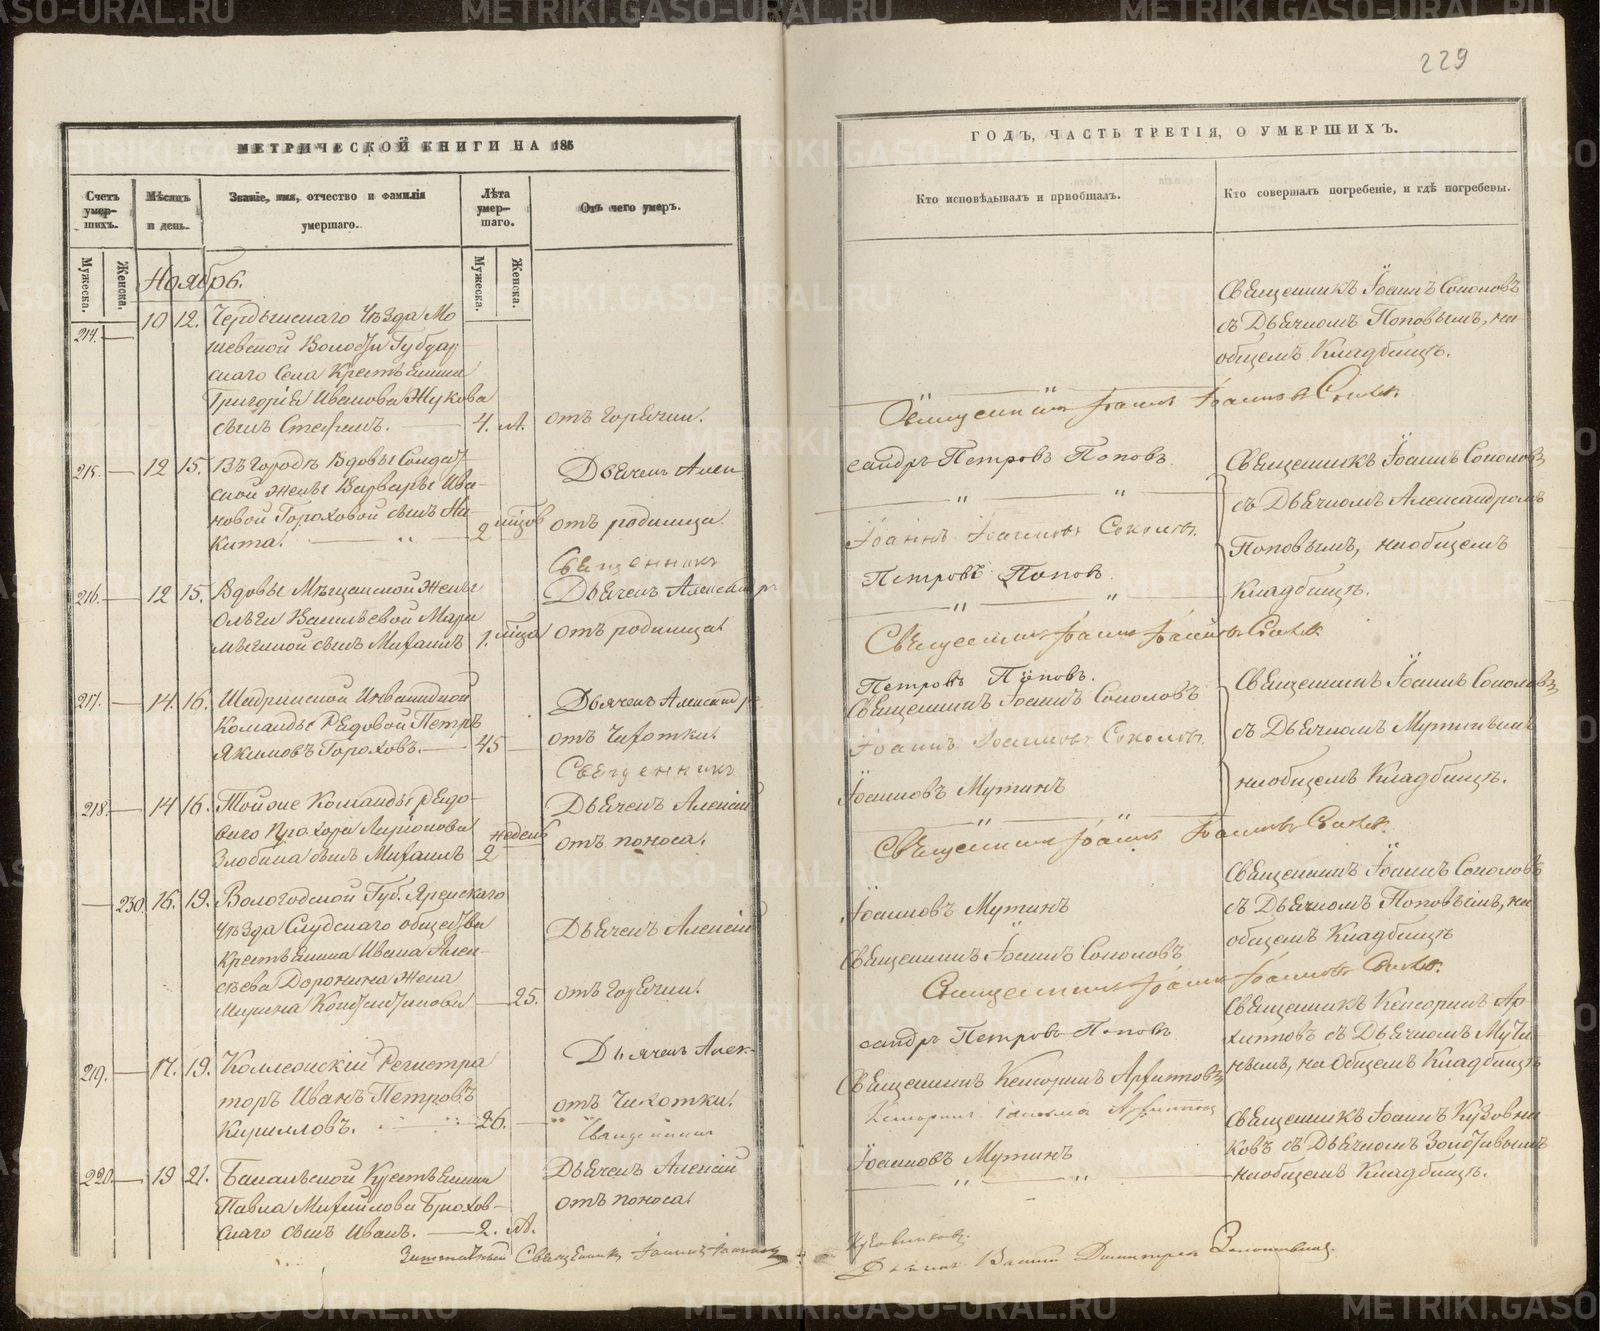 229
МЕТРИЧЕСКОЙ КНИГИ НА 185
Счетъ умер-шихъ.
Мѣсяцъ и день.
Званіе, имя, отчество и фамилія умершаго.
Лѣта умер-шаго.
Отъ чего умеръ.
Мужеска.
Женска.
Мужеска.
Женска.
Ноябрь.
214. 10 12. Чердынскаго Уѣзда Мо
шевской Волости Губдор
скаго Села Крестьянина
Григорія Иванова Жукова
сынъ Стефанъ. 4. л. отъ горячки.
215. 12 15. Въ Городѣ Вдовы Солдат
ской жены Варвары Ива-
новой Гороховой сынъ Ни
кита. 2 отъ родимца.
Дьячекъ Алек
Священникъ
216. 12 15. Вдовы Мѣщанской Жены
Ольги Васильевой
сынъ Михаилъ 1. отъ родимца.
Дьячекъ Александръ
217. 14. 16. Шадринской Инвалидной
Команды Рядовой Петръ
Якимовъ Гороховъ. 45 отъ Чахотки.
Дьячекъ Александръ
Священникъ
218. 14 16. Тойже Команды Рядо-
ваго Прохора Ларіонова
Злобина сынъ Михаилъ 2 недель отъ поноса.
Дьячекъ Алексій
230. 16. 19. Вологодской Губ. Яренскаго
Уѣзда Слудскаго общества
Крестьянина Ивана Алек-
сѣева Доронина Жена
Марина Константинова 25. отъ горячки.
Дьячекъ Алексій
219. 17. 19. Коллежскій Регистра
торъ Иванъ Петровъ
Кирилловъ. 26. отъ Чахотки.
Дьячекъ Алек-
Священникъ
220. 19 21. Крестьянина
Павла Михайлова Брюхов-
скаго сынъ Иванъ. 2. л. отъ поноса.
Дьячекъ Алексій
Священникъ Іоаннъ
ГОДЪ, ЧАСТЬ ТРЕТІЯ, О УМЕРШИХЪ.
Кто исповѣдывалъ и пріобщалъ.
Кто совершалъ погребеніе, и гдѣ погребены.
Священникъ Іоаннъ Соколовъ
съ Дьячкомъ Поповымъ, на
общемъ Кладбищѣ.
Священникъ Іоаннъ Іоанновъ Соколовъ.
сандръ Петровъ Поповъ
Священникъ Іоаннъ Соколовъ
съ Дьячкомъ Александромъ
Іоаннъ Іоанновъ Соколовъ.
Поповымъ, на общемъ
Петровъ Поповъ.
Кладбищѣ.
Священникъ Іоаннъ Іоанновъ Соколовъ
Петровъ Поповъ.
Священникъ Іоаннъ Соколовъ
Священникъ Іоаннъ Соколовъ
съ Дьячкомъ Мутинымъ
Іоаннъ Іоанновъ Соколовъ.
на общемъ Кладбищѣ.
Іоанновъ Мутинъ
Священникъ Іоаннъ Іоанновъ Соколовъ.
Священникъ Іоаннъ Соколовъ
съ Дьячкомъ Поповымъ, на
Іоанновъ Мутинъ
общемъ Кладбищѣ
Священникъ Іоаннъ Соколовъ
Священникъ Іоаннъ Іоанновъ Соколовъ.
Священникъ Кенсоринъ Ар-
сандръ Петровъ Поповъ
хиповъ съ Дьячкомъ Мути
нымъ, на Общемъ Кладбищѣ
Священникъ Кенсоринъ Архиповъ
Священникъ Іоаннъ Кузовни
Іоанновъ Мутинъ
ковъ съ Дьячкомъ Золотавинымъ
на общемъ Кладбищѣ.
Кузовниковъ.
METRIKI.GASO-URAL.RU